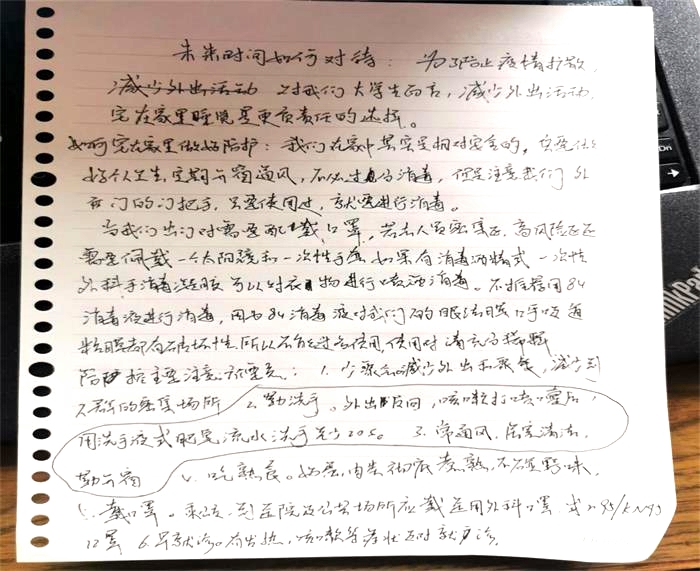 Backspace
未来时间如何对待：为了防止疫情扩散，
减少外出活动 对我们大学生而言，减少外出活动，
宅在家里睡觉是更负责任的选择。
如何宅在家里做好防护：我们在家中其实是相对安全的，只要做
好个人卫生，定期开窗通风，不必过多消毒，但是注意我们外
面门的门把手，只要使用过，就要进行消毒。
当我们出门时需要配戴口罩，若去人员密集区、高风险区还
需要佩戴一个太阳镜和一次性手套 如果有消毒酒精或一次性
外科手消毒凝胶可以对衣物进行喷洒消毒。不推荐用84
消毒液进行消毒，因为84消毒液对我们的眼结膜口手呼吸道
粘膜都有破坏性 所以不能过多使用，使用时请充分稀释
防护 主要注意 1. 减少外出和聚餐，减少到
人群的密集场所 2. 勤洗手。外出返回，咳嗽打喷嚏后，
用洗手液或肥皂 流水洗手至少20s。 3. 常通风，居室清洁，
勤开窗 4. 吃熟食。如蛋、肉类彻底煮熟，不食野味。
5. 戴口罩。乘 到医院及公共场所应戴医用外科口罩 或N95/KN95
口罩 6. 早就诊。有发热，咳嗽等症状及时就诊。
PrtSc
ThinkPad